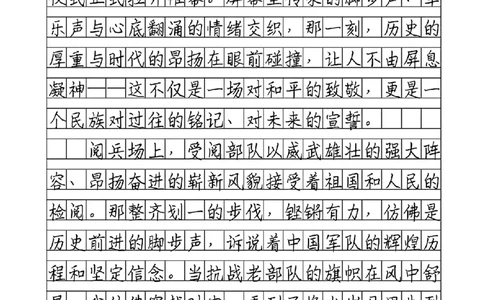 乐声与心底翻涌的情绪交织，那一刻，历史的
厚重与时代的昂扬在眼前碰撞，让人不由屏息
凝神——这不仅是一场对和平的致敬，更是一
个民族对过往的铭记、对未来的宣誓。
阅兵场上，受阅部队以威武雄壮的强大阵
容、昂扬奋进的崭新风貌接受着祖国和人民的
检阅。那整齐划一的步伐，铿锵有力，仿佛是
历史前进的脚步声，诉说着中国军队的辉煌历
程和坚定信念。当抗战老部队的旗帜在风中舒